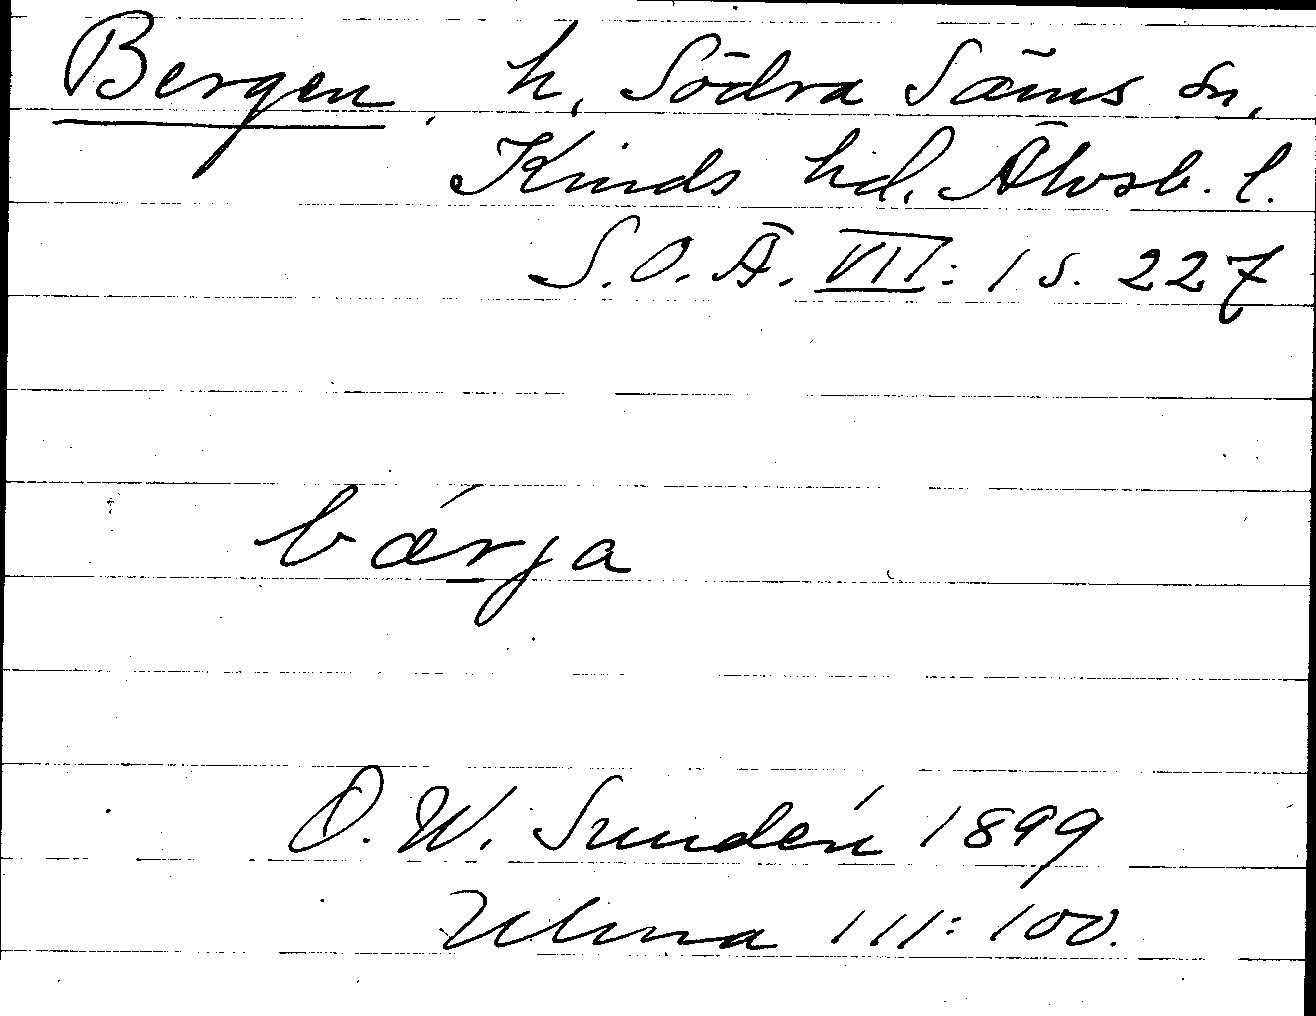 Bergen, h, Södra Säms sn,
Kinds hd. Älvsb. l.
S.O.Ä. VII: 1 s. 227
bǽrja
O. W. Sundén 1899
Ulma 111: 100.